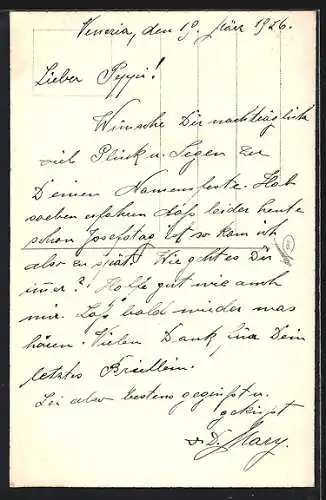 Venezia, den 19. März 1926.
Lieber Peppi!
Wünsche Dir nachträglich
viel Glück u. Segen zu
Deinem Namensfeste. Hab
soeben erfahren daß leider heute
schon Josefstag ist so kam ich
also zu spät. Wie geht es Dir
immer? Hoffe gut wie auch
mir. Laß bald wieder was
hören. Vielen Dank für Dein
letztes Brieflein.
Sei also bestens gegrüßt u.
geküsst
v. D. Mary.